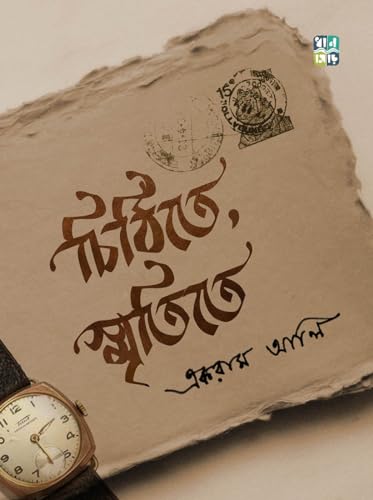 চিঠিতে,
স্মৃতিতে
একরাম আলি